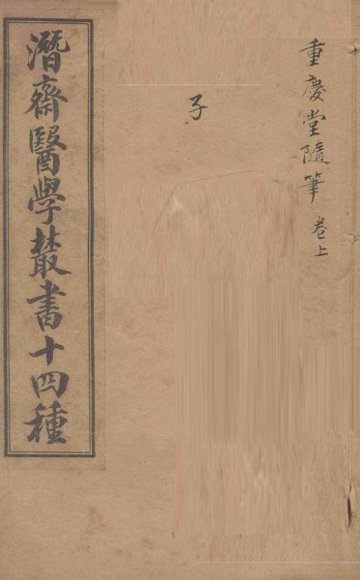 重慶堂隨筆 卷上
子
潛齋醫學叢書十四種